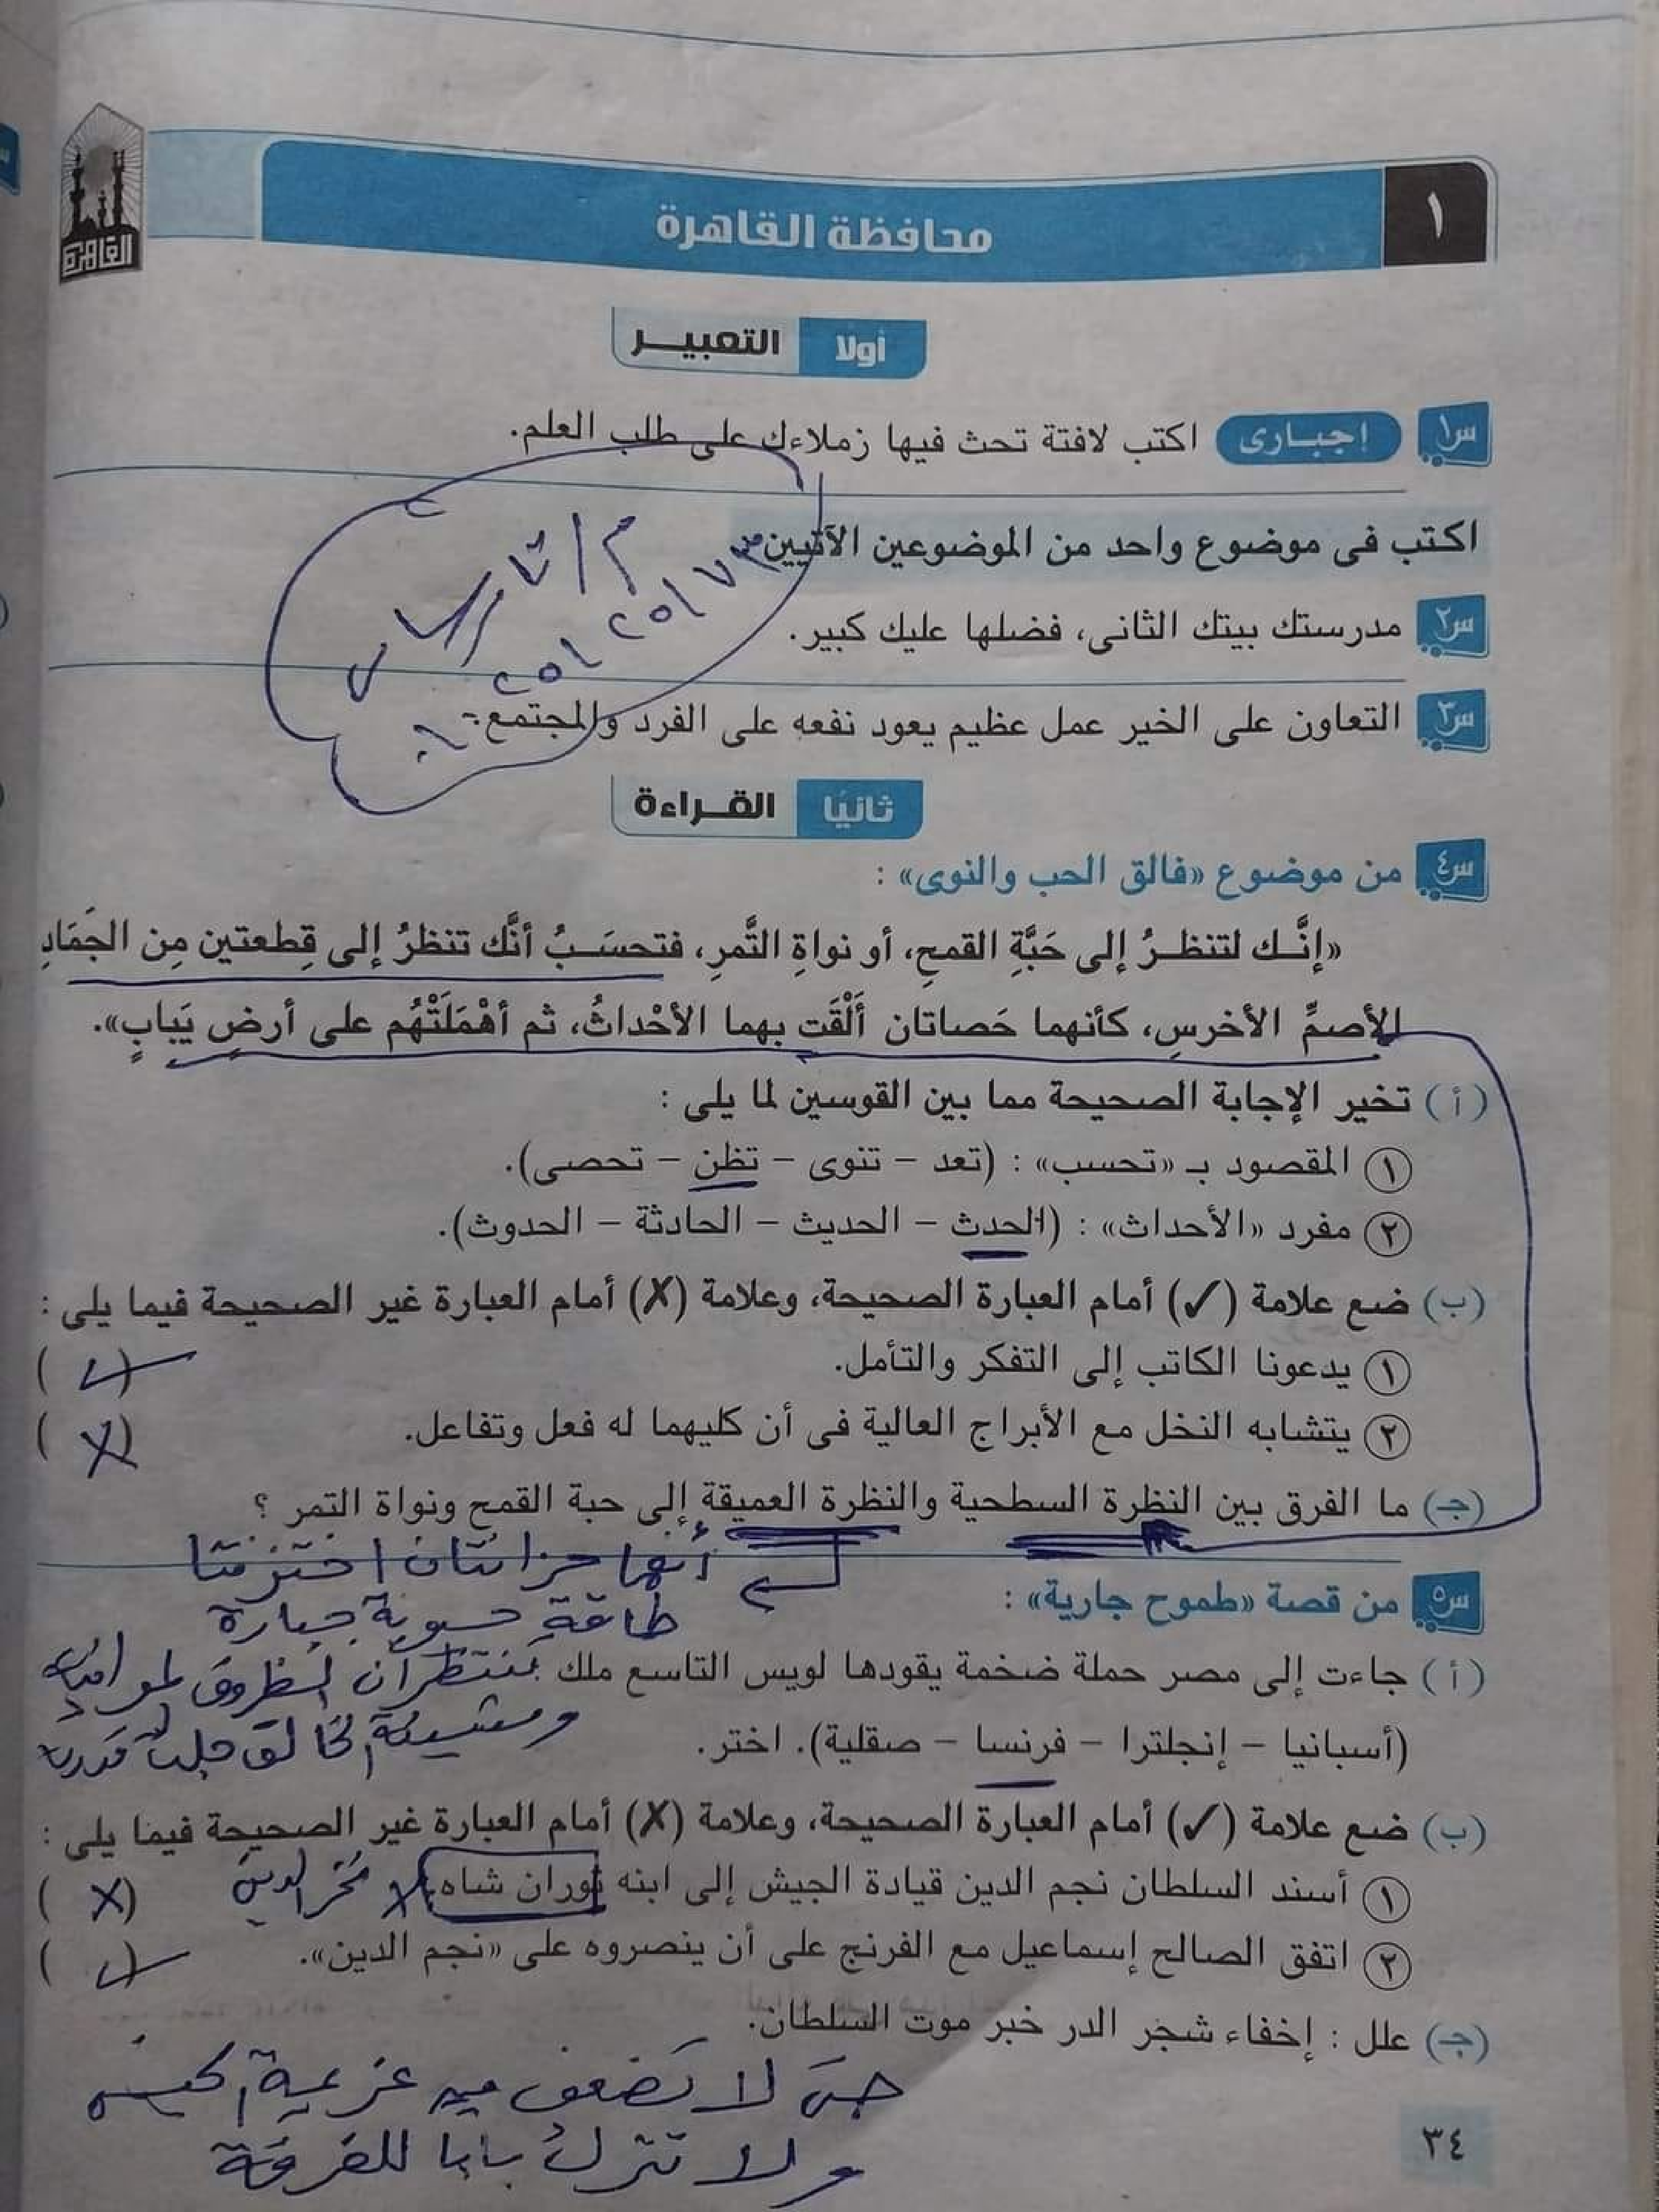 ١
محافظة القاهرة
القاهرة
أولا التعبيـــر
س١ إجبـارى اكتب لافتة تحث فيها زملاءك على طلب العلم.
اكتب فى موضوع واحد من الموضوعين الآتيين
س٢ مدرستك بيتك الثانى، فضلها عليك كبير.
س٣ التعاون على الخير عمل عظيم يعود نفعه على الفرد والمجتمع.
ثانيًا القــراءة
س٤ من موضوع «فالق الحب والنوى» :
«إنَّــك لتنظــرُ إلى حَبَّةِ القمحِ، أو نواةِ التَّمرِ، فتحسَــبُ أنَّك تنظرُ إلى قِطعتين مِن الجَمَادِ
الأصمِّ الأخرسِ، كأنهما حَصاتان أَلْقَت بهما الأحْداثُ، ثم أهْمَلَتْهُم على أرضٍ يَبابٍ».
(أ) تخير الإجابة الصحيحة مما بين القوسين لما يلى :
١ المقصود بـ «تحسب» : (تعد – تنوى – تظن – تحصى).
٢ مفرد «الأحداث» : (الحدث – الحديث – الحادثة – الحدوث).
(ب) ضع علامة (✓) أمام العبارة الصحيحة، وعلامة (✗) أمام العبارة غير الصحيحة فيما يلى :
١ يدعونا الكاتب إلى التفكر والتأمل. (✓)
٢ يتشابه النخل مع الأبراج العالية فى أن كليهما له فعل وتفاعل. (✗)
(جـ) ما الفرق بين النظرة السطحية والنظرة العميقة إلى حبة القمح ونواة التمر ؟
أنهما خزانتان اختزنتا
طاقة حيوية جبارة
س٥ من قصة «طموح جارية» :
(أ) جاءت إلى مصر حملة ضخمة يقودها لويس التاسع ملك
تنتظران الظروف
ومشيئة الخالق جلت قدرته
(أسبانيا – إنجلترا – فرنسا – صقلية). اختر.
(ب) ضع علامة (✓) أمام العبارة الصحيحة، وعلامة (✗) أمام العبارة غير الصحيحة فيما يلى :
١ أسند السلطان نجم الدين قيادة الجيش إلى ابنه توران شاه. فخر الدين (✗)
٢ اتفق الصالح إسماعيل مع الفرنج على أن ينصروه على «نجم الدين». (✓)
(جـ) علل : إخفاء شجر الدر خبر موت السلطان.
حتى لا تضعف من عزيمة الجيش
ولا تترك بابا للفرقة
٣٤